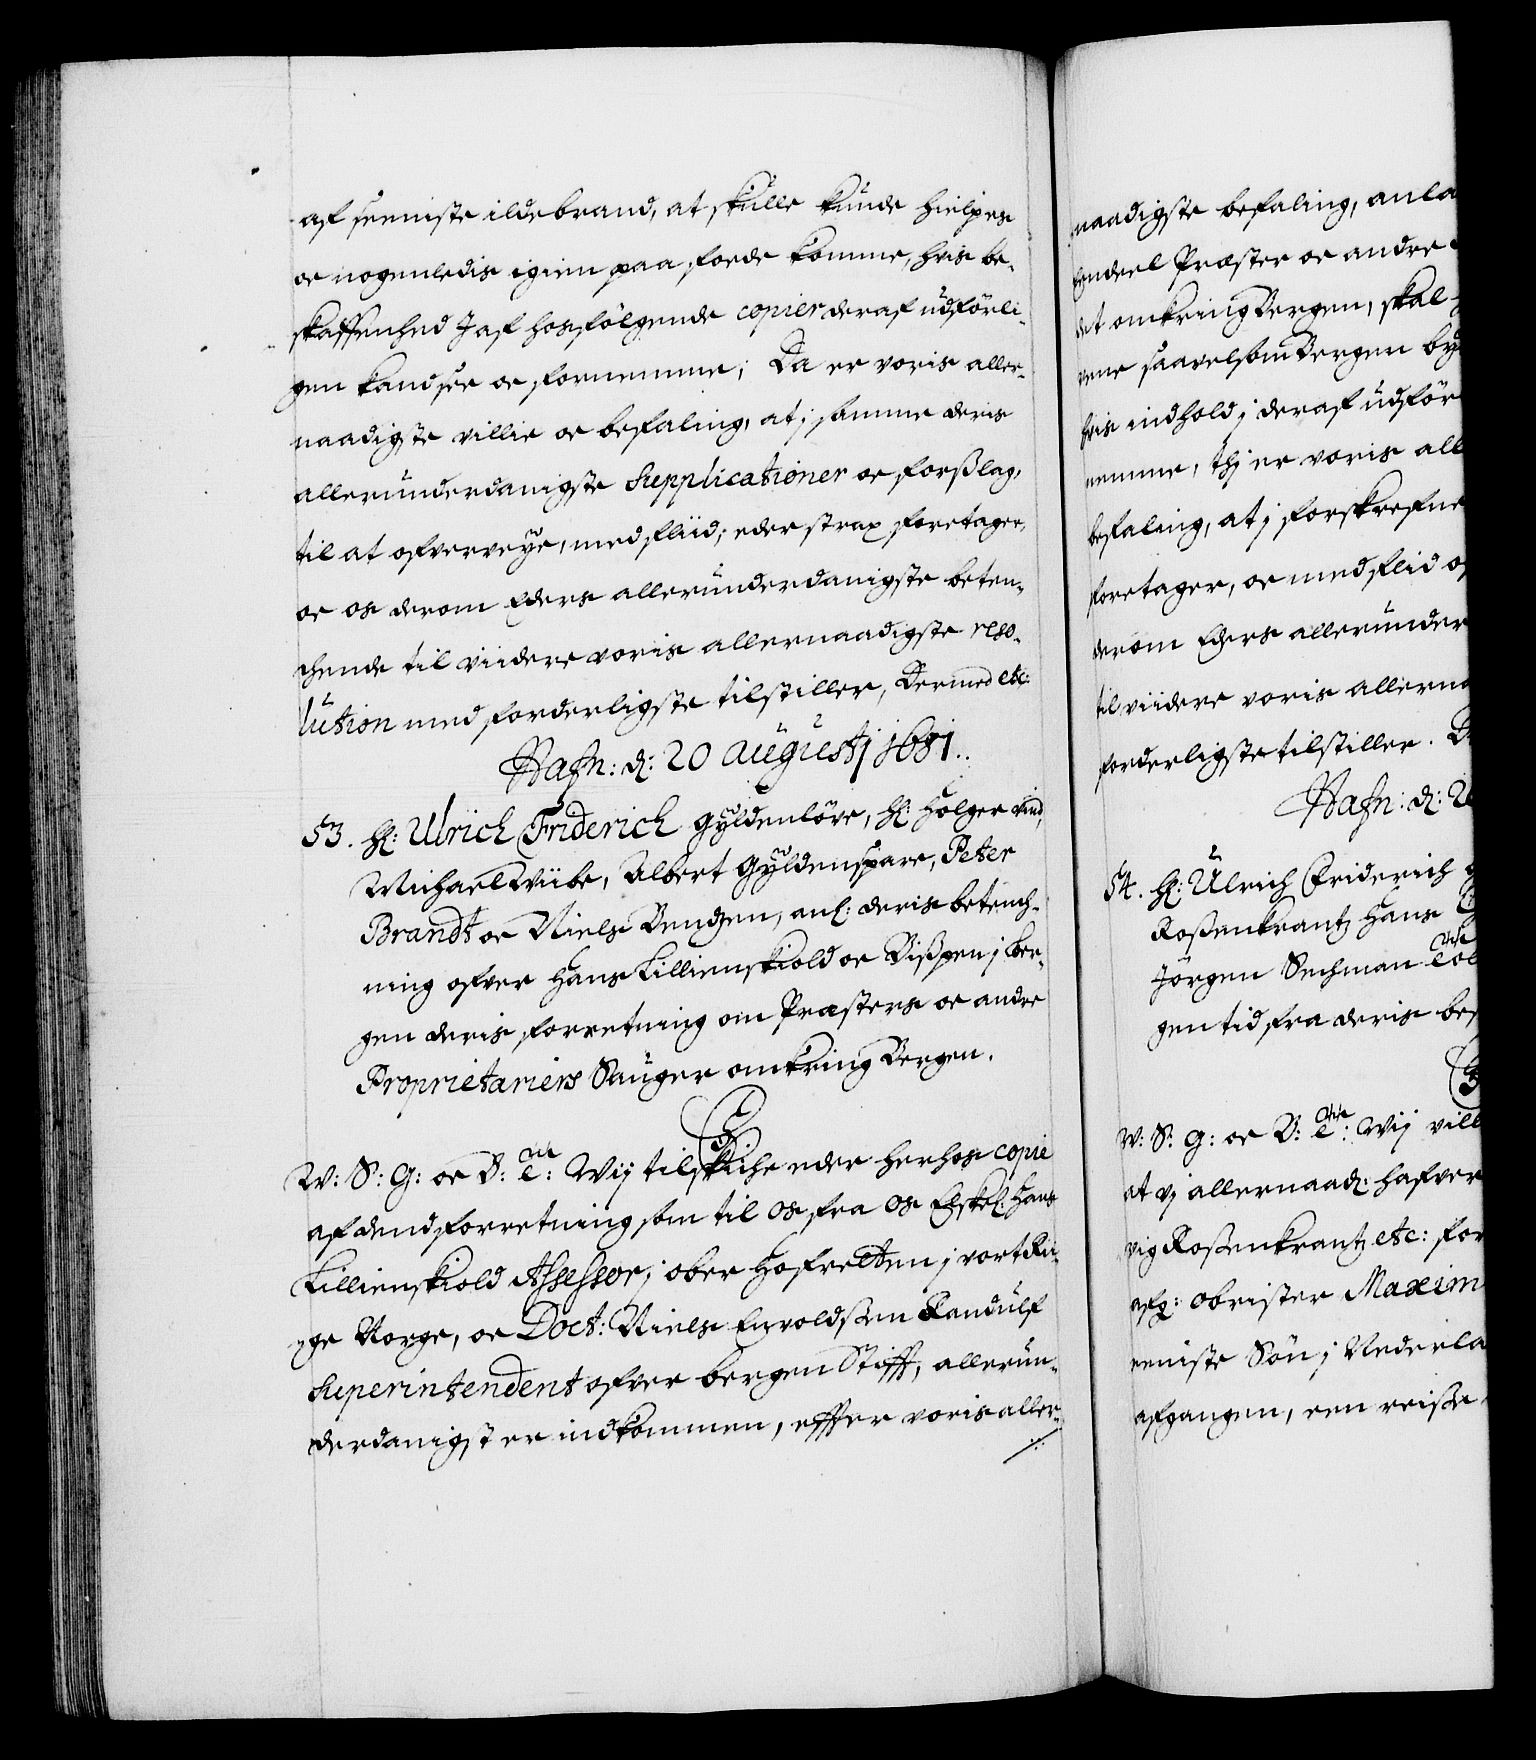 af seeniste ildebrand, at skulle kunde hielpes
oc nogenledis igien paa foede komme, hvis be-
skaffenhed I af hosfølgende copier deraf udførli-
gen kand see oc fornemme; Da er voris aller-
naadigste villie oc befaling, at j samme deris
allerunderdanigste Supplicationer oc forßlag,
til at ofverveÿe, med fliid, eder strax foretager,
oc os derom Eders allerunderdanigste beten-
chende til viidere voris allernaadigste reso-
lution med forderligste tilstiller, Dermed etc:
Hafn: d: 20 Augustj 1681..
53. H: Ulrich Friderich Gÿldenløve, H: Holger Vind,
Michael Wiibe, Albert Gÿldenspare, Peter
Brandt oc Niels Bendzen, anl: deris betench-
ning ofver Hans Lillienskiold oc Bißpen j Ber-
gen deris forretning om Præsters oc andre
Proprietariers Sauger omkring Bergen.
C5
W: S: G: oc B: etc: Wij tilskiche eder herhos copie
af dend forretning som til os fra os Elskel: Hans
Lillienskiold Assessor j ober Hofretten j vort Ri-
ge Norge, oc Doct: Niels Envoldsen Randulf
Superintendent ofver Bergen Stifft, allerun-
derdanigst er indkommen, effter voris aller-
naadigste befaling, anla
Eendeel Præster oc andre
det omkring Bergen, skal
vene saavelsom Bergen by
hvis indhold j deraf udfør
nemme, thj er voris all
befaling, at j forskrefne
foretager, oc med flid of
derom Eders allerunder
til viidere voris allerna
forderligste tilstiller. D
Hafn: d: 2
54. H: Ulrich Friderich
Rosenkrantz Hans
Jørgen Sechman
gen tid fra deris bes
W: S: G: oc B: etc: Wij vill
at vj allernaad: hafver
vig Rosenkrantz etc: for
afg: obrister Maxim
eeniste Søn j Nederla
afgangen, een reise